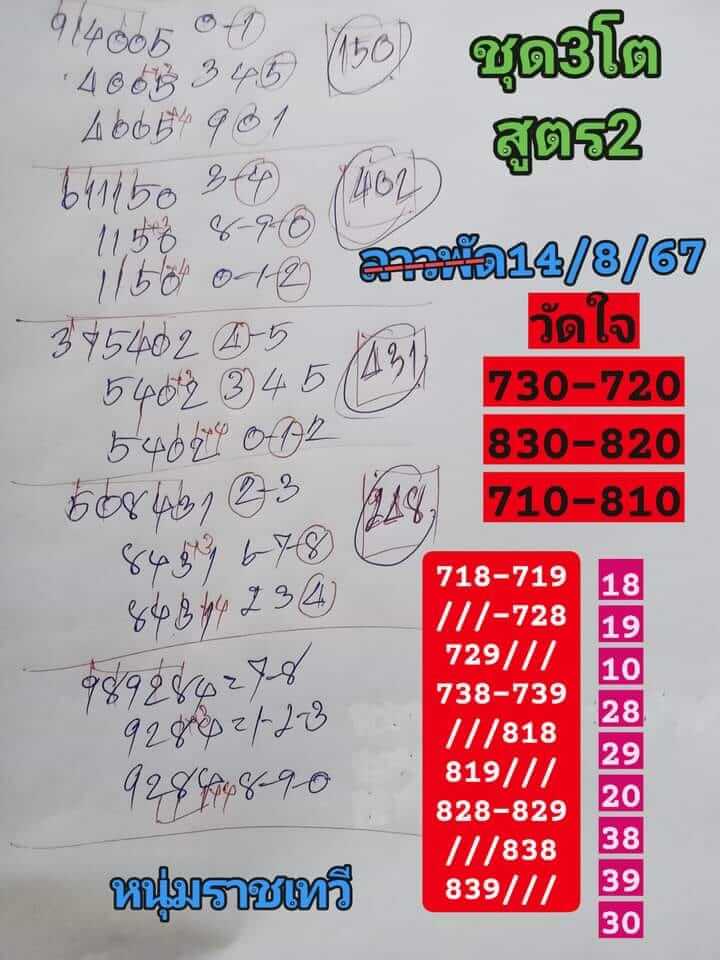 914005 0-1
150
4005+3 3 4 5
4005+4 9 0 1
ชุด3โต
สูตร2
611150 3-4
402
1150+3 8-9-0
1150+4 0-1-2
ลาวพัด14/8/67
วัดใจ
730-720
830-820
710-810
375402 4-5
431
5402+3 3 4 5
5402+4 0-1-2
508431 2-3
8431+3 6-7-8
8431+4 2 3 4
718-719
///-728
729///
738-739
///818
819///
828-829
///838
839///
18
19
10
28
29
20
38
39
30
989284=7-8
9284+3=1-2-3
9284+4 8-9-0
หนุ่มราชเทวี